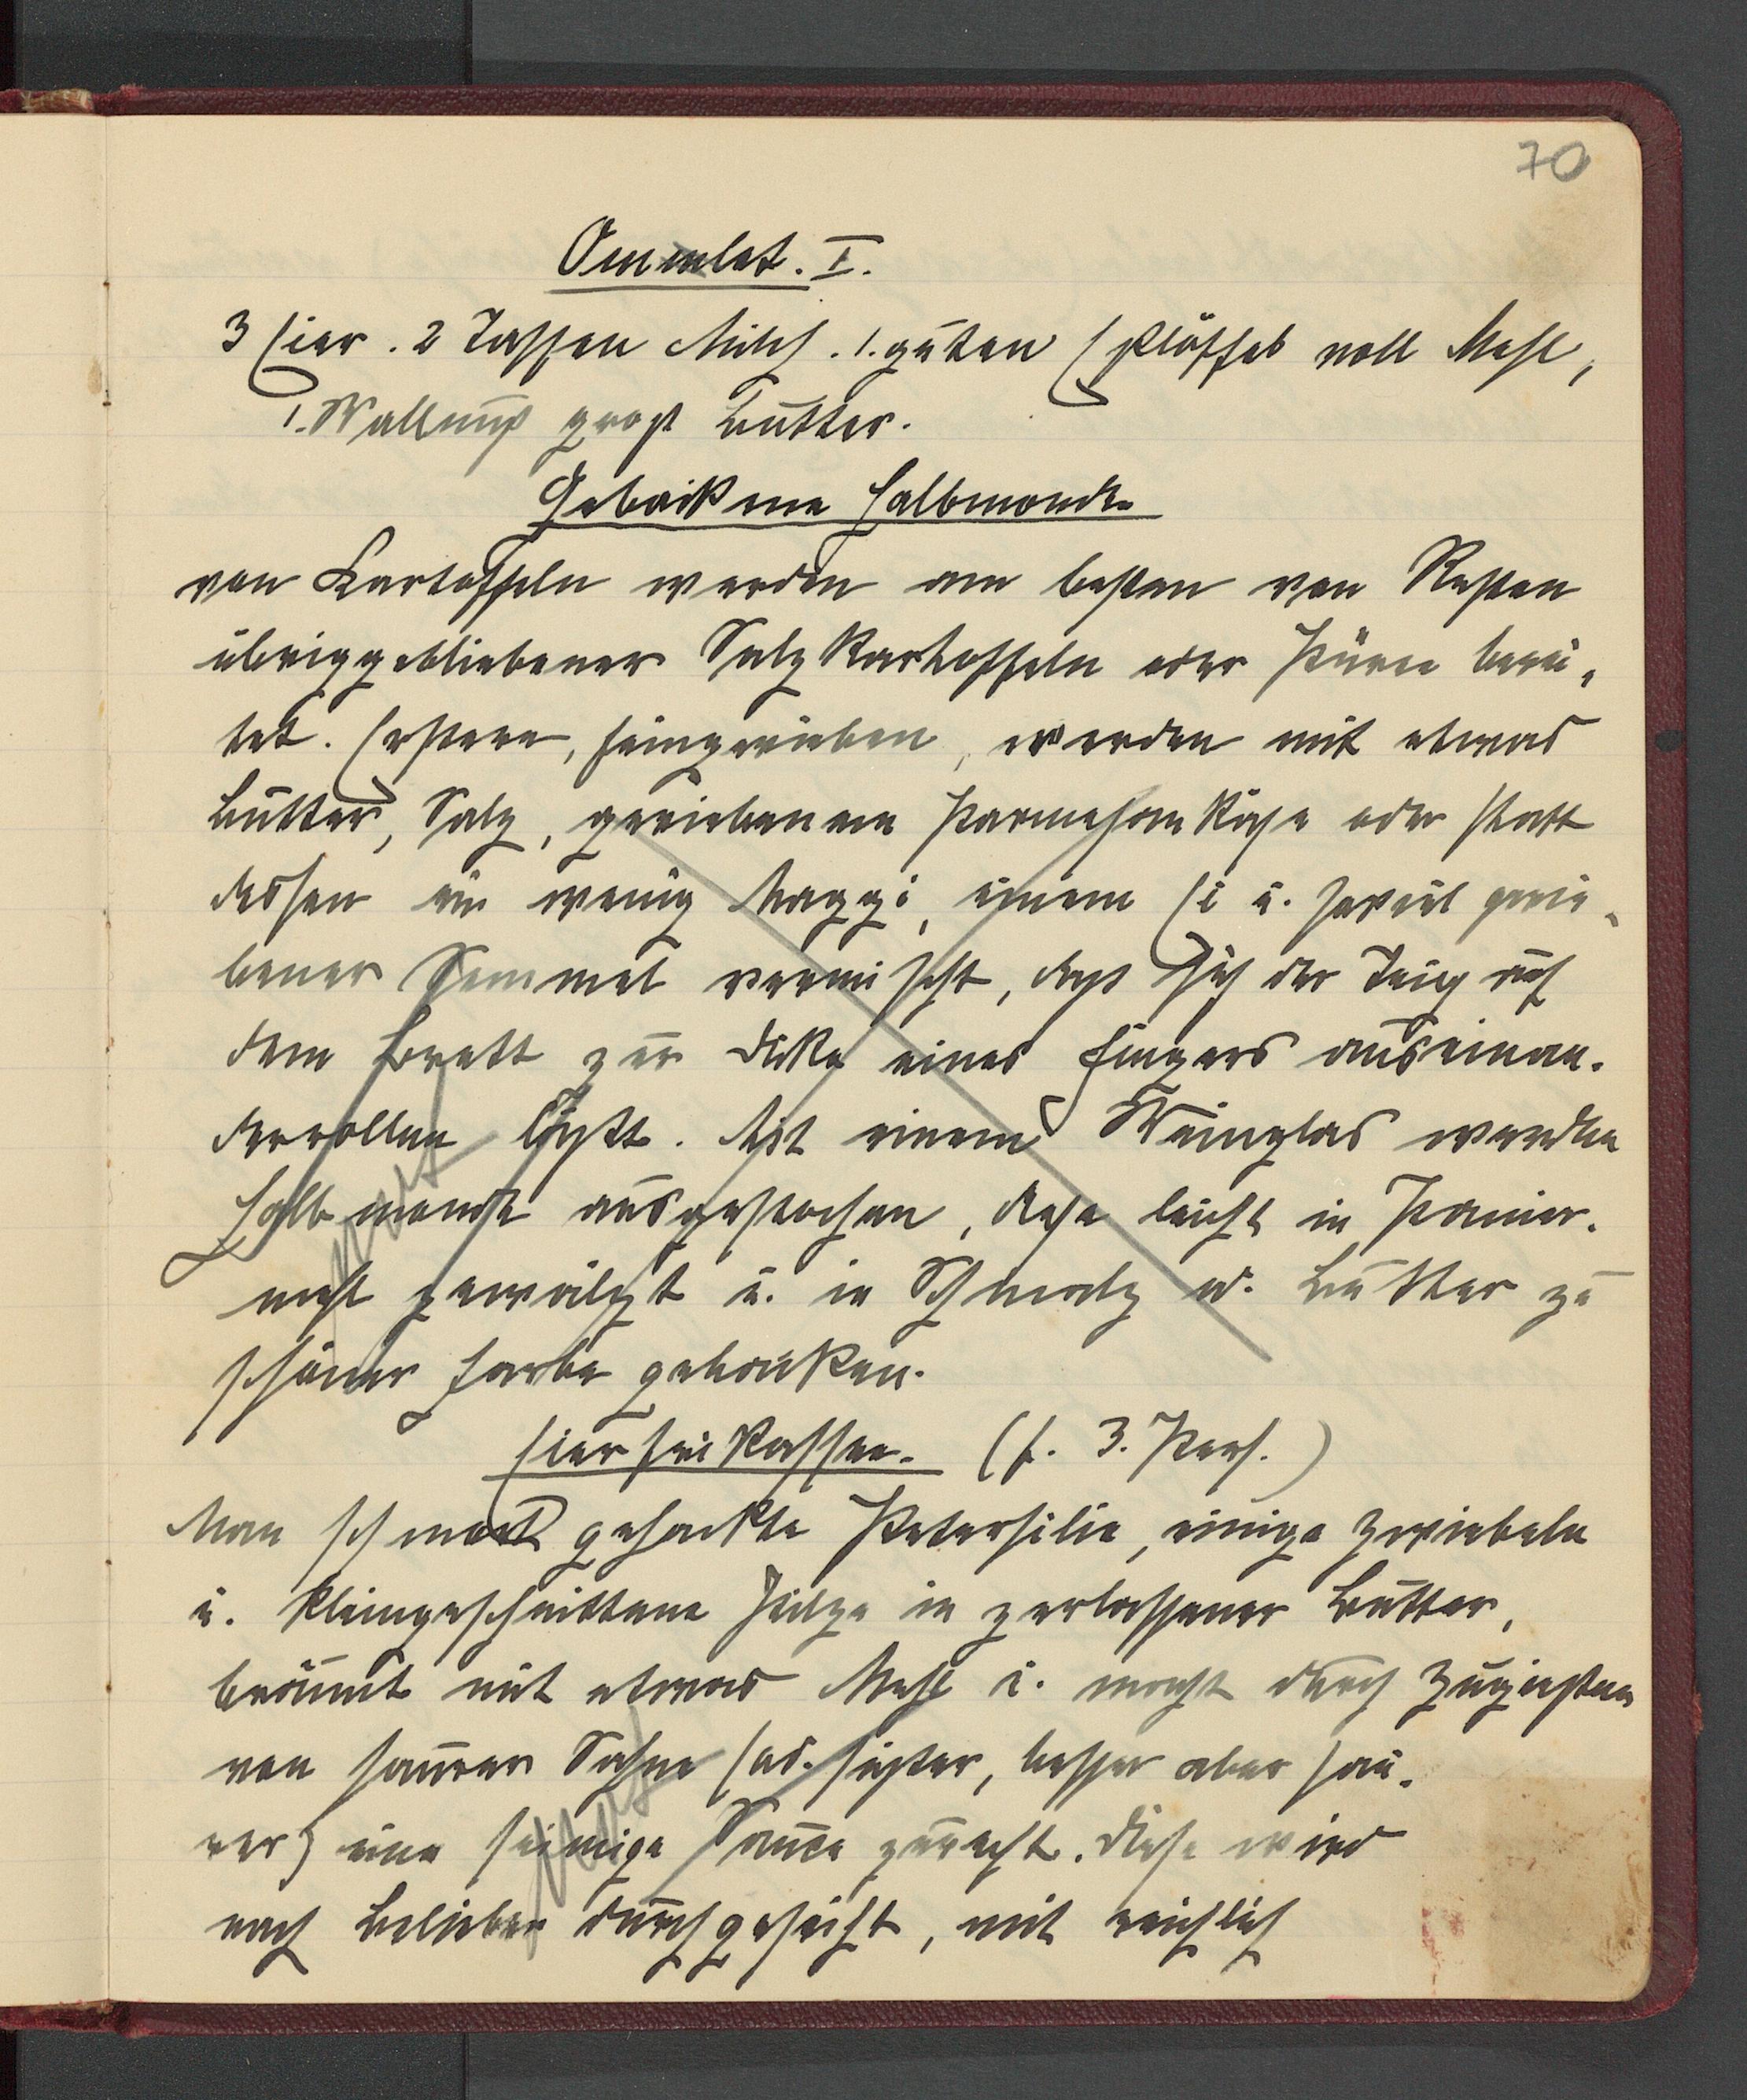 70
Ommlet. I.
3 Eier. 2 Tassen Milch. 1. guten Esslöffel voll Mehl,
1. Wallnuß groß Butter.
Gebackene Halbmonde
von Kartoffeln werden am besten von Resten
übriggebliebener Salzkartoffeln oder Püree berei-
tet. Erstere, feingerieben, werden mit etwas
Butter, Salz, geriebenem Parmesankäse oder statt
dessen ein wenig Maggi, einem Ei u. soviel gerie-
bener Semmel vermischt, daß sich der Teig auf
dem Brett zur Dicke eines Fingers auseinan-
derrollen läßt. Mit einem Weinglas werden
Halbmonde ausgestochen, diese leicht in Panier-
mehl gewälzt u. in Schmalz od. Butter zu
schöner Farbe gebacken.
Eierfrikassee. (f. 3. Pers.)
Man schmort gehackte Petersilie, einige Zwiebeln
u. kleingeschnittene Pilze in zerlassener Butter,
bräunt mit etwas Mehl u. macht durch Zugießen
von saurer Sahne (od. süßer, besser aber sau-
rer) eine seimige Sauce zurecht. Diese wird
nach Belieben durchgeseiht, mit reichlich